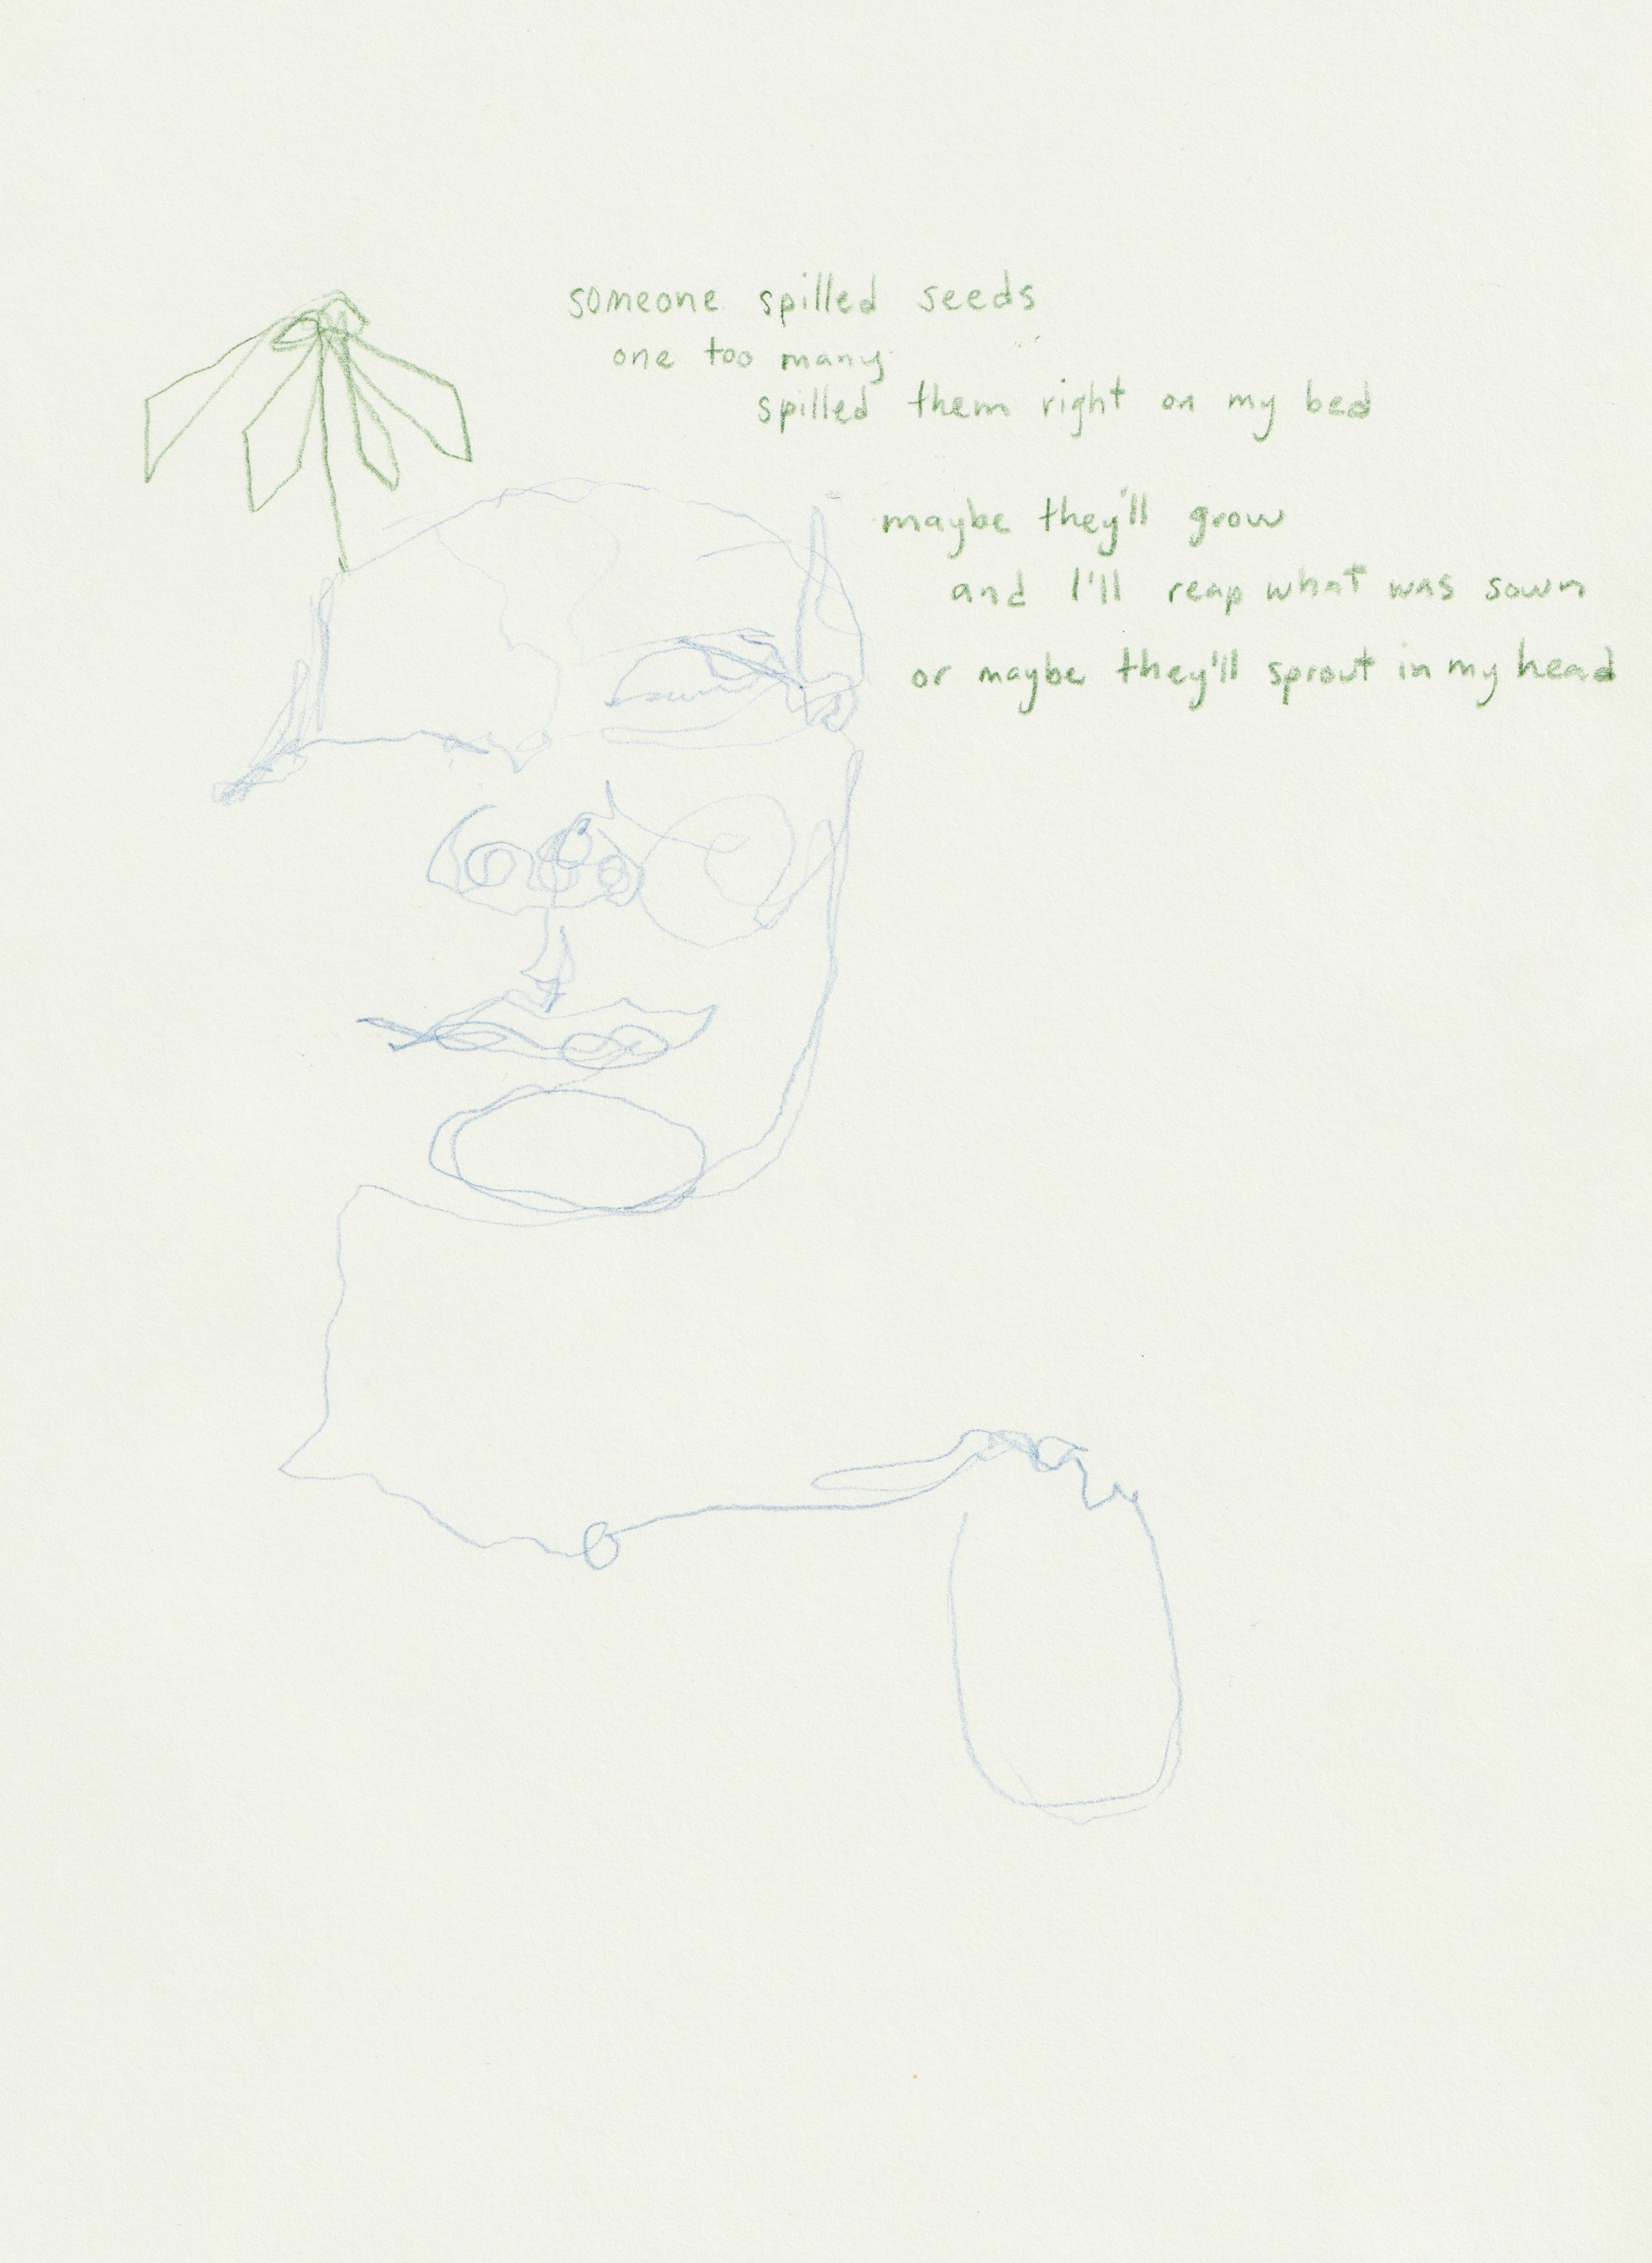 someone spilled seeds
one too many
spilled them right on my bed
maybe they'll grow
and I'll reap what was sown
or maybe they'll sprout in my head